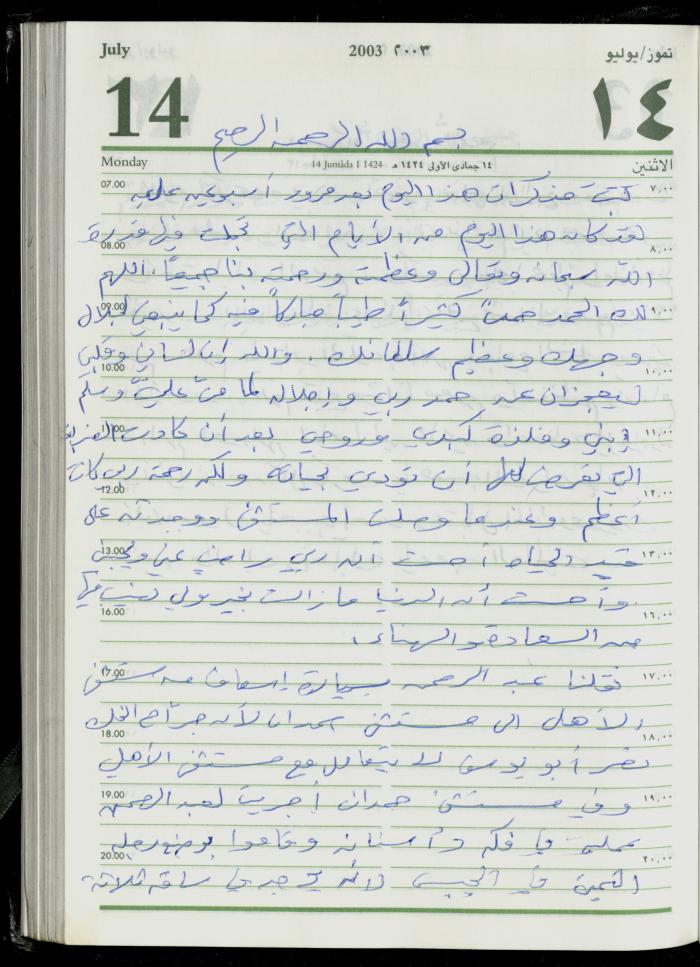 July 2003 ٢٠٠٣ تموز/يوليو
14 ١٤
بسم الله الرحمن الرحيم
Monday 14 Jumâda I 1424 ١٤ جمادى الأولى ١٤٢٤ هـ الاثنين
07.00 كتبت مذكرات هذا اليوم بعد مرور أسبوعين عليه ٧,٠٠
لقد كان هذا اليوم من الأيام التي تجلت فيها قدرة
08.00 ٨,٠٠
الله سبحانه وتعالى وعظمته ورحمته بنا جميعاً، اللهم
09.00 لك الحمد حمداً كثيراً طيباً مباركاً فيه كما ينبغي لجلال ٩,٠٠
وجهك وعظيم سلطانك. والله إن لساني وقلبي
10.00 ١٠,٠٠
ليعجزان عن حمد ربي وإجلاله لما منّ عليّ وسلم
11.00 إبني وفلذة كبدي وروحي بعد أن كادت ١١,٠٠
التي تعرض لها أن تودي بحياته ولكن رحمة ربي كانت
12.00 ١٢,٠٠
أعظم وعندما وصلت المستشفى ووجدته على
13.00 قيد الحياة أحسست أن ربي راضٍ عني ويحبني ١٣,٠٠
وأحسست أن الدنيا ما زالت بخير ولي نصيب فيها
16.00 ١٦,٠٠
من السعادة والهناء.
17.00 نقلنا عبد الرحمن بسيارة إسعاف من مستشفى ١٧,٠٠
الأهلي الى مستشفى حمدان لأن جراح الفك
18.00 ١٨,٠٠
نضر أبو يوسف لا يتعامل مع مستشفى الأهلي
19.00 وفي مستشفى حمدان أجريت لعبد الرحمن ١٩,٠٠
عملية في فكه وأسنانه وقاموا بوضع رجله
20.00 ٢٠,٠٠
اليمنى في الجبس لأنه يوجد في ساقه ثلاثة